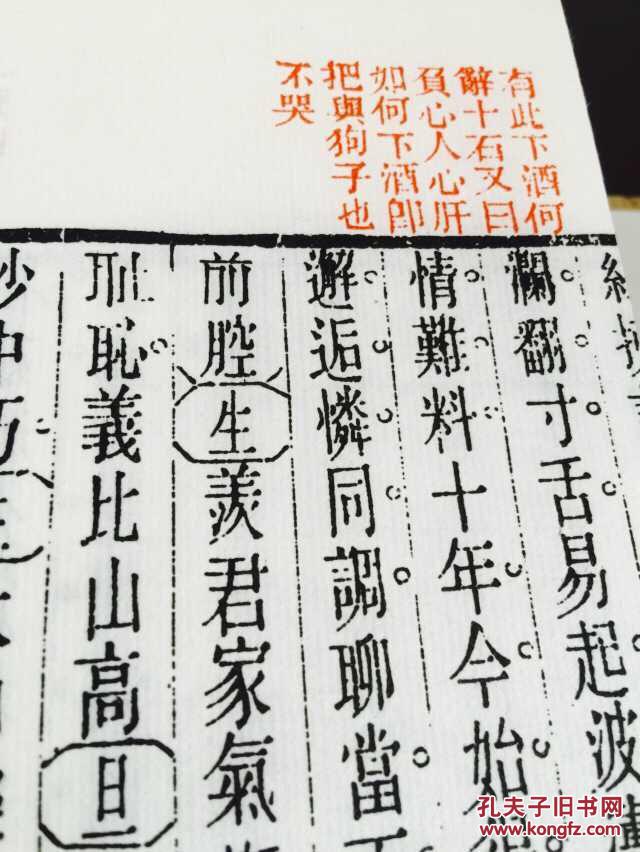 有此下酒何
辭十石又曰
負心人心肝
如何下酒卽
把與狗子也
不哭
瀾翻寸舌易起波
情難料十年今始
邂逅憐同調聊當
前腔生羨君家氣
恥義比山高旦
孔夫子旧书网
www.kongfz.com